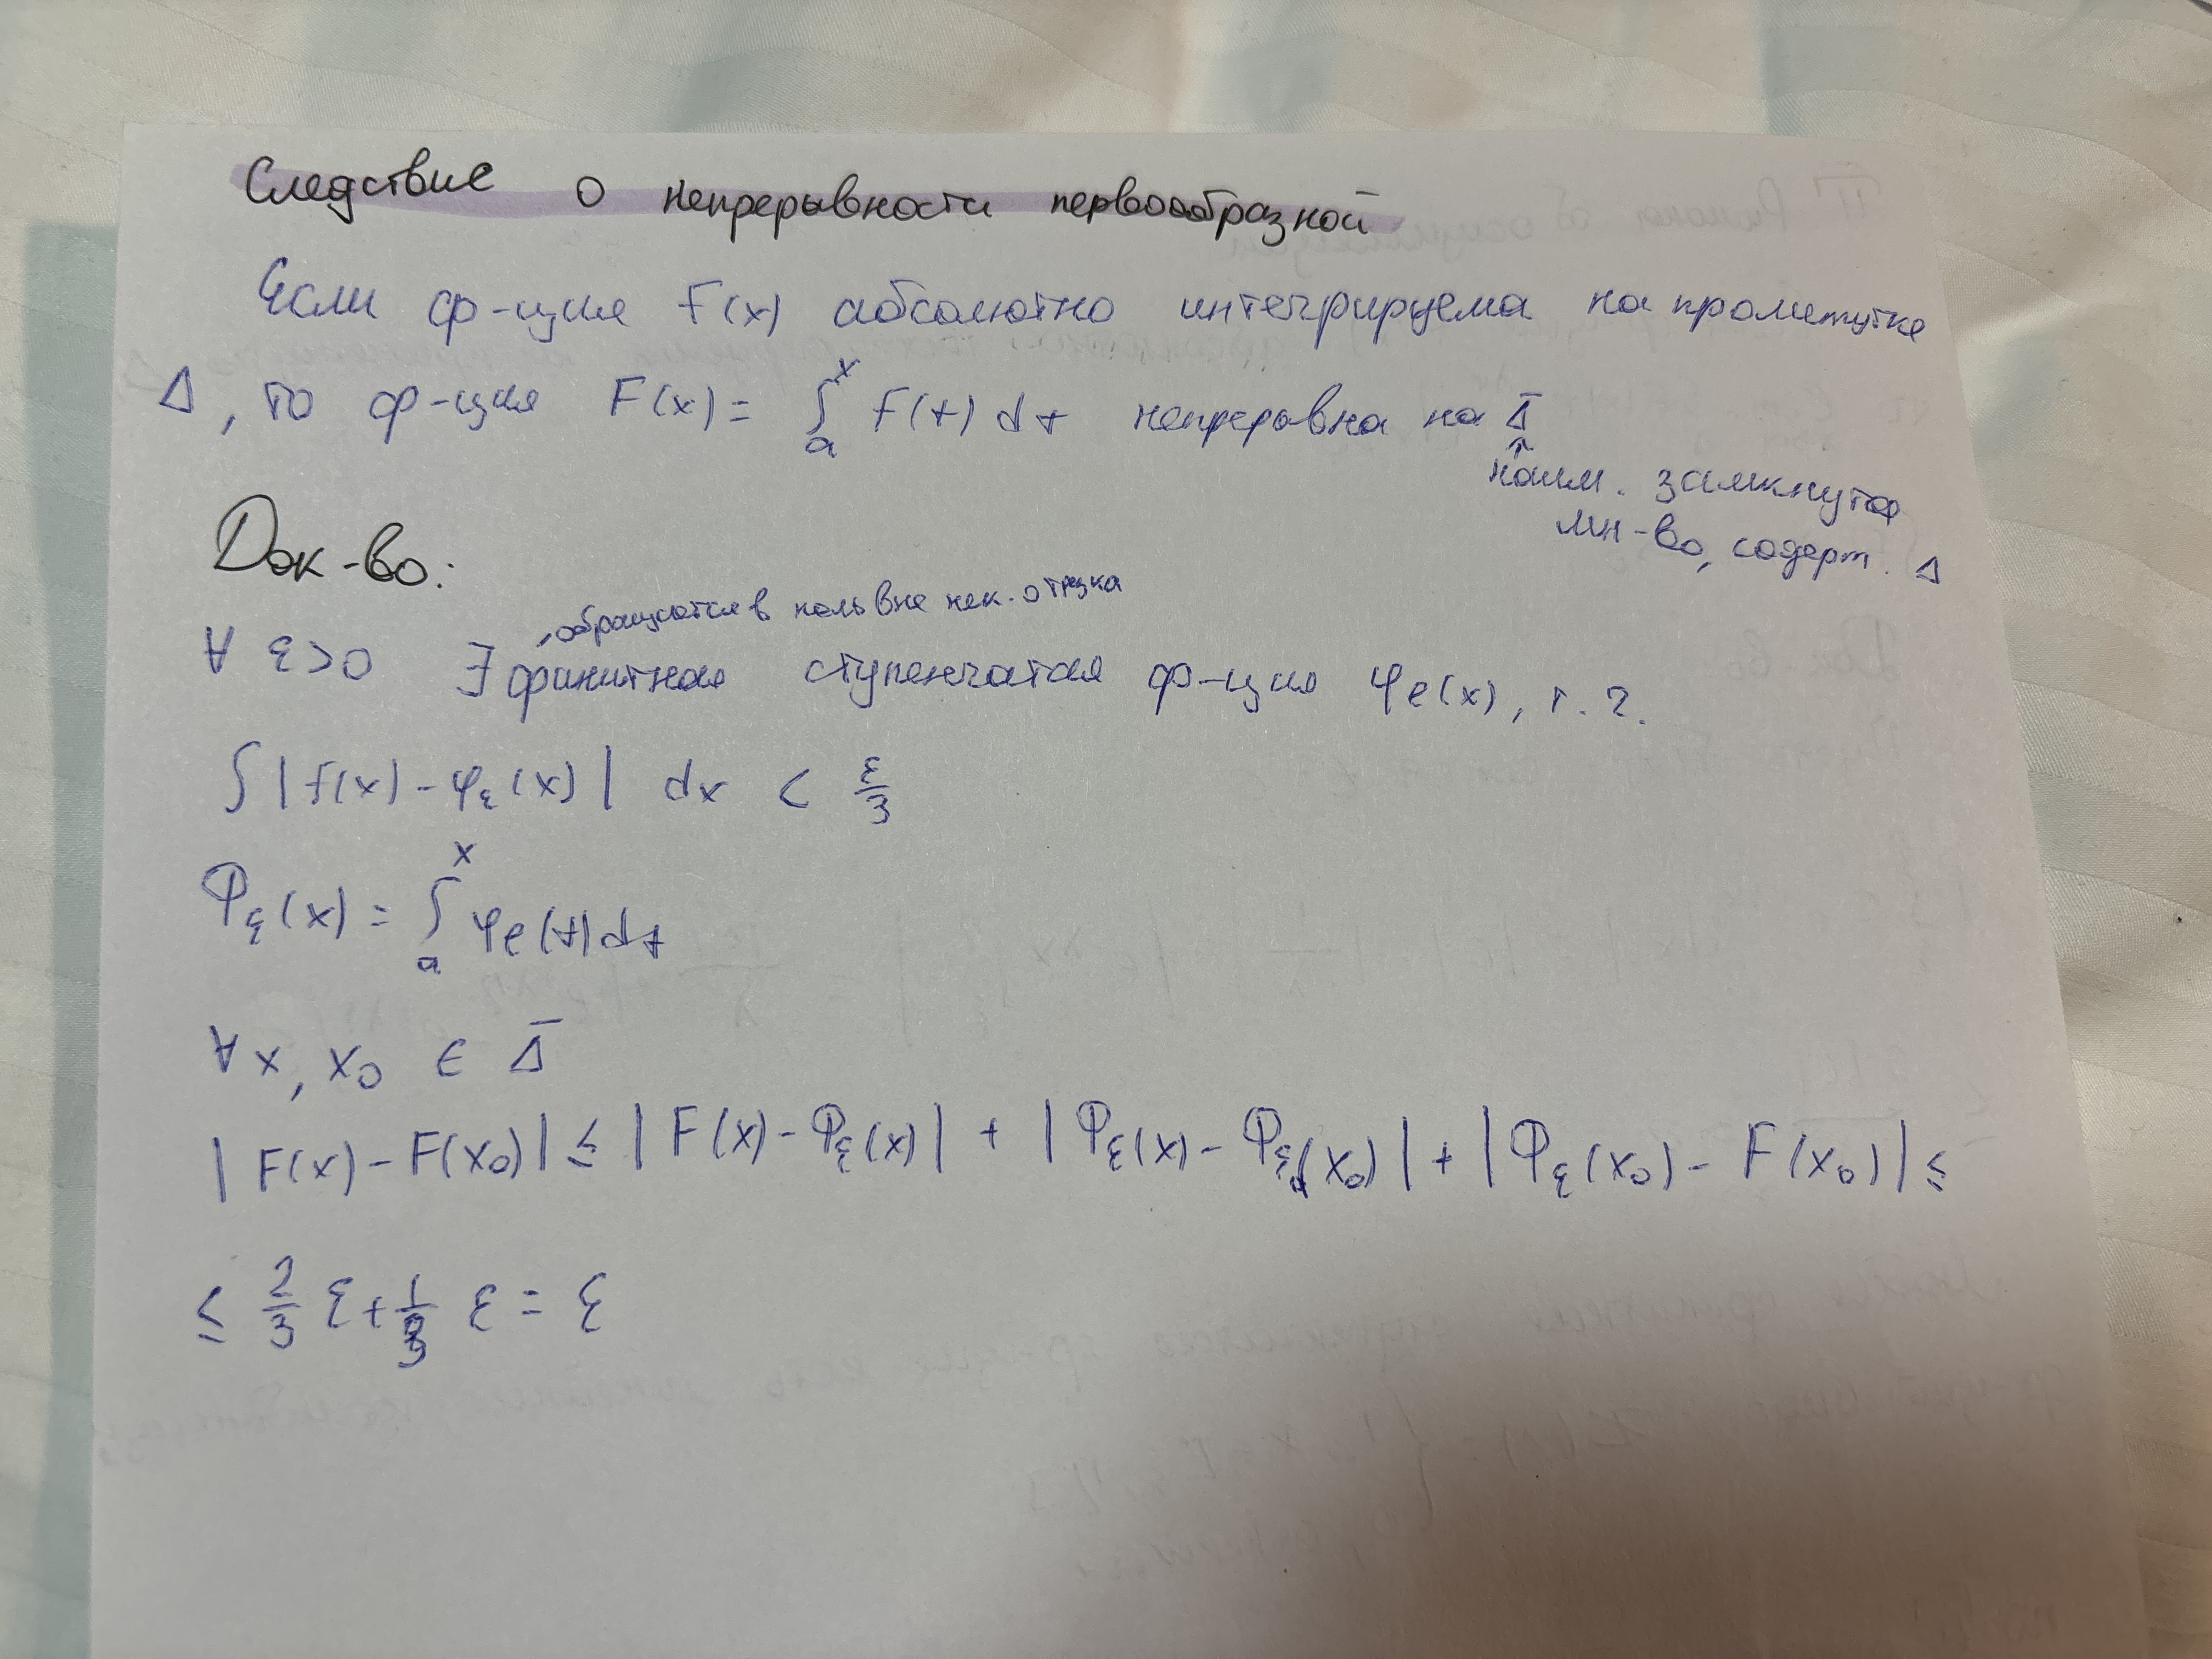 Следствие о непрерывности первообразной
Если ф-ция f(x) абсолютно интегрируема на промежутке
Δ, то ф-ция F(x) = ∫ₐˣ f(t) dt непрерывна на Δ̅
↑
наим. замкнутое
мн-во, содерж. Δ
Док-во:
обращается в ноль вне нек. отрезка
∀ ε>0 ∃ финитная ступенчатая ф-ция φε(x), т.ч.
∫|f(x) - φε(x)| dx < ε/3
Φε(x) = ∫ₐˣ φε(t)dt
∀ x, x₀ ∈ Δ̅
|F(x) - F(x₀)| ≤ |F(x) - Φε(x)| + |Φε(x) - Φε(x₀)| + |Φε(x₀) - F(x₀)| ≤
≤ 2/3 ε + 1/3 ε = ε